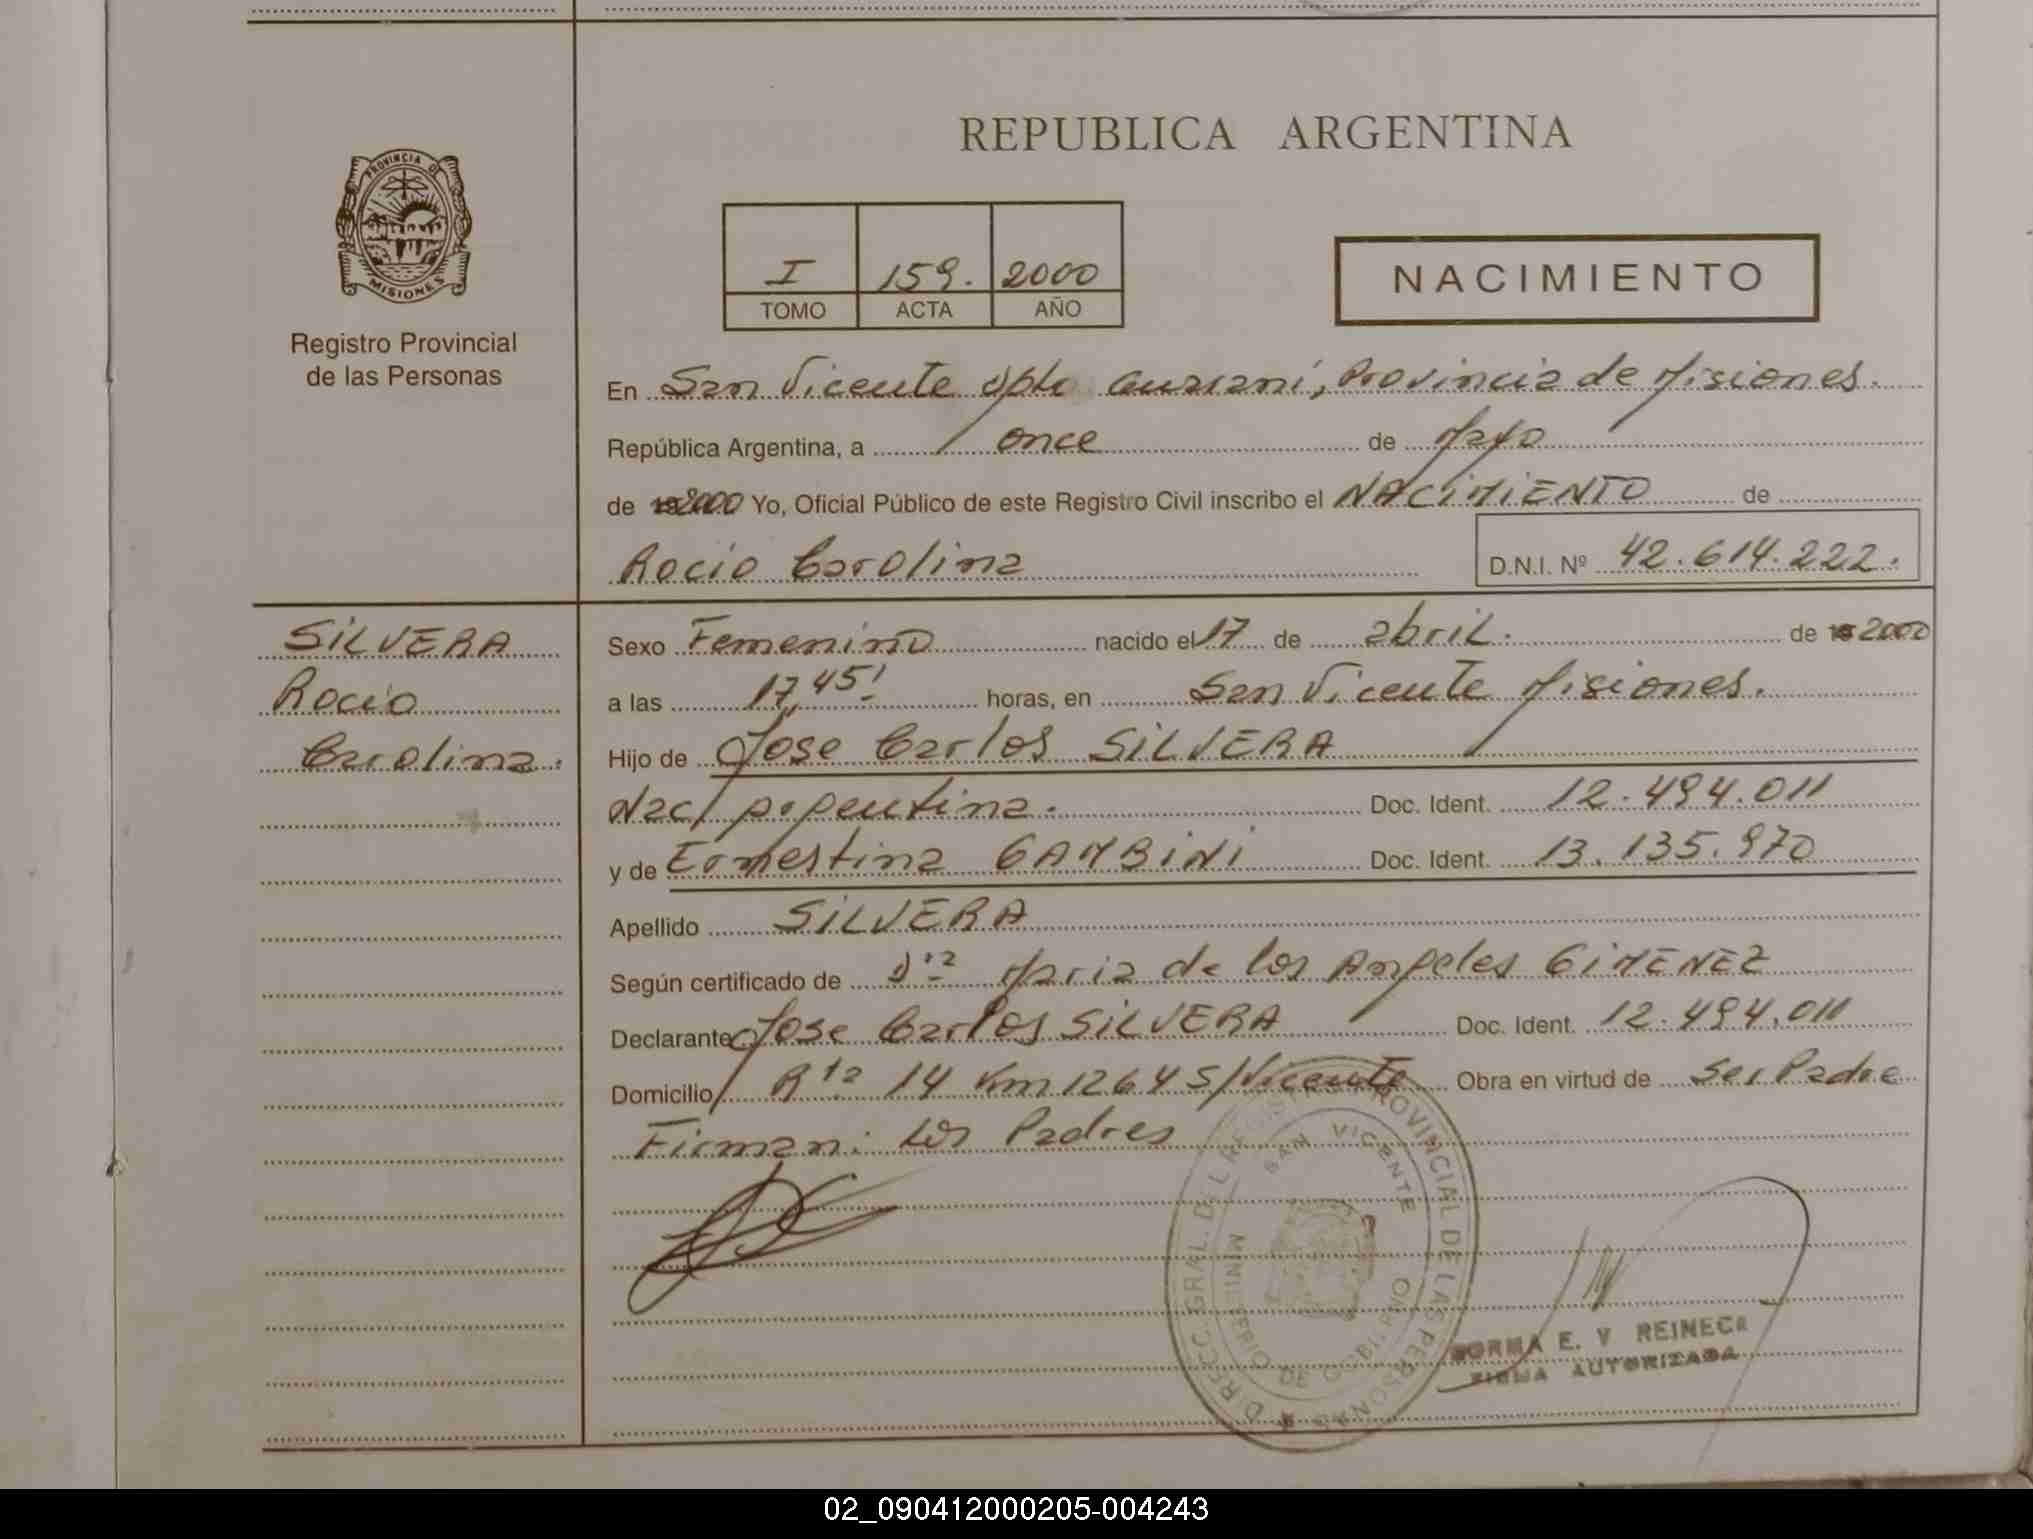 REPUBLICA ARGENTINA
PROVINCIA DE
MISIONES
Registro Provincial
de las Personas
I 159. 2000
TOMO ACTA AÑO
NACIMIENTO
En San Vicente Dpto Guarani, Provincia de Misiones.
República Argentina, a once de Mayo
de 2000 Yo, Oficial Público de este Registro Civil inscribo el NACIMIENTO de
Rocio Carolina D.N.I. Nº 42.614.222.
SILVERA
Rocio
Carolina.
Sexo Femenino nacido el 17 de abril. de 2000
a las 17,45' horas, en San Vicente Misiones.
Hijo de Jose Carlos SILVERA
Nac/ Argentina. Doc. Ident. 12.494.011
y de Ernestina GAMBINI Doc. Ident. 13.135.970
Apellido SILVERA
Según certificado de Dra Maria de los Angeles GIMENEZ
Declarante Jose Carlos SILVERA Doc. Ident. 12.494.011
Domicilio Rta 14 Km 1264 S/Vicente Obra en virtud de Ser Padre
Firman: Los Padres
DIRECC. GRAL. DEL REGISTRO PROVINCIAL DE LAS PERSONAS
SAN VICENTE
MINISTERIO DE GOBIERNO
NORMA E. V REINECK
FIRMA AUTORIZADA
02_090412000205-004243